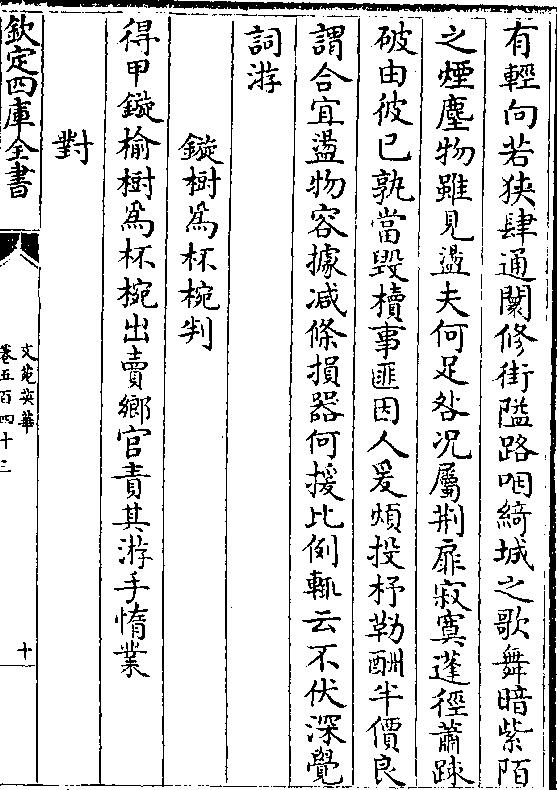 有輕向若狹肆通闤修街隘路咽綺城之歌舞暗紫陌
之煙塵物雖見盪夫何足咎况屬荆扉寂寞蓬徑蕭踈
破由彼已孰當毁櫝事匪因人爰煩投杼勒酬半價良
謂合宜盪物容據减條損器何援比例輒云不伏深覺
詞游
鏇樹為杯椀判
得甲鏇榆樹為杯椀出賣鄉官責其游手惰業
對
欽定四庫全書
文苑英華
卷五百四十三
十